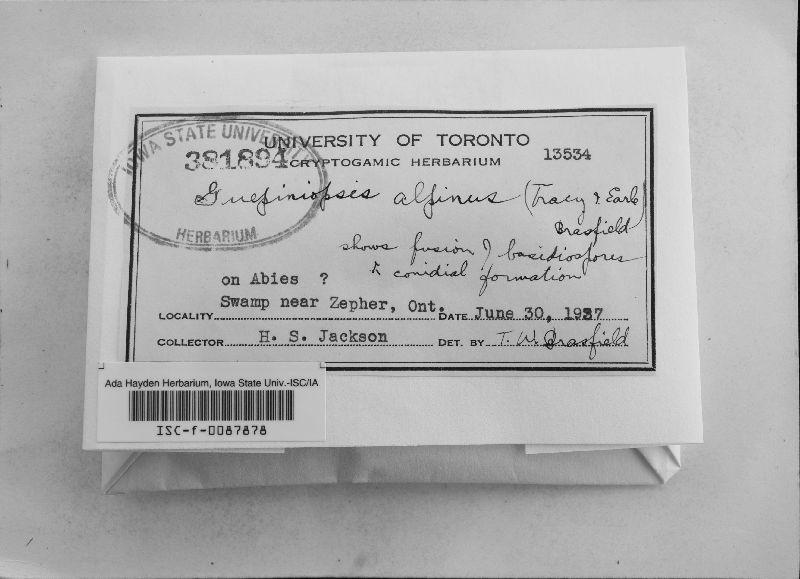 IOWA STATE UNIVERSITY
381894
HERBARIUM
UNIVERSITY OF TORONTO
CRYPTOGAMIC HERBARIUM 13534
Guepiniopsis alpinus (Tracy & Earle)
Brasfield
shows fusion of basidiospores
& conidial formation
on Abies ?
Swamp near Zepher, Ont.
LOCALITY DATE June 30, 1937
COLLECTOR H. S. Jackson DET. BY T. W. Brasfield
Ada Hayden Herbarium, Iowa State Univ.-ISC/IA
ISC-f-0087878